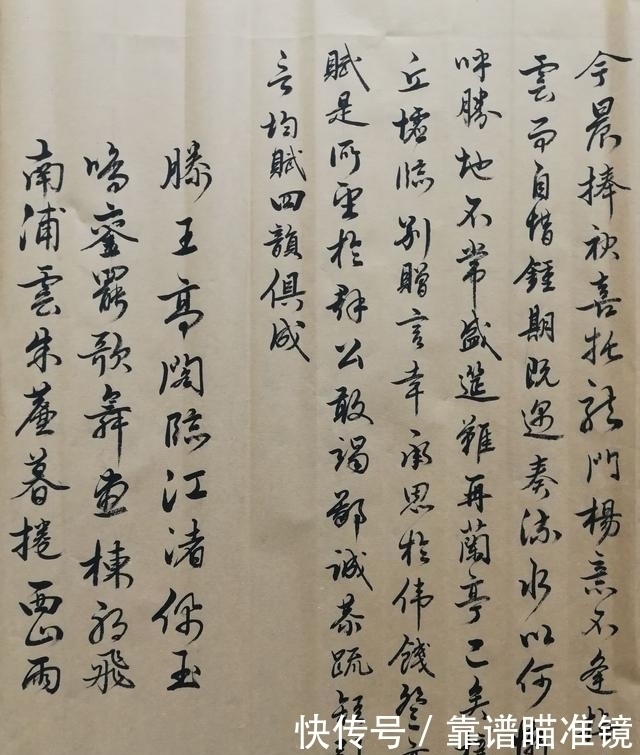 今晨捧袂喜托龍門楊意不逢
雲而自惜鍾期既遇奏流水以何
呼勝地不常盛筵難再蘭亭已矣
丘墟臨別贈言幸承恩於偉餞登
賦是所望於群公敢竭鄙誠恭疏短
言均賦四韻俱成
滕王高閣臨江渚佩玉
鳴鑾罷歌舞畫棟朝飛
南浦雲朱簾暮捲西山雨
快传号/靠谱瞄准镜